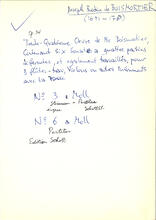 Joseph Bodin de BOISMORTIER
(1691 - 1755)
op 34
Trente-Quatrième Oeuvre de Mr Boismortier,
Contenant Six Sonates à quatre parties
différentes, et également travaillés, pour
3 flûtes-trav, Violons ou autres Instruments
avec la Basse
No 3 a Moll
Stimmen + Partitur
Schott
No 6 e Moll
Partitur
Edition Schott